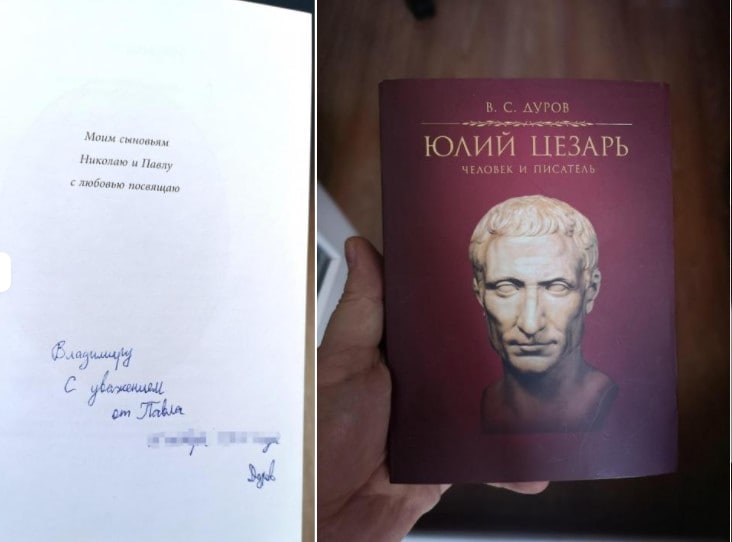 Моим сыновьям
Николаю и Павлу
с любовью посвящаю
Владимиру
С уважением
от Павла
Дуров
В. С. ДУРОВ
ЮЛИЙ ЦЕЗАРЬ
ЧЕЛОВЕК И ПИСАТЕЛЬ